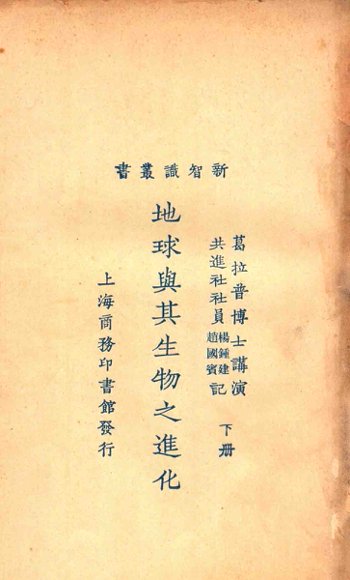 新智識叢書
葛拉普博士講演
共進社社員楊鍾建趙國賓記
下册
地球與其生物之進化
上海商務印書館發行